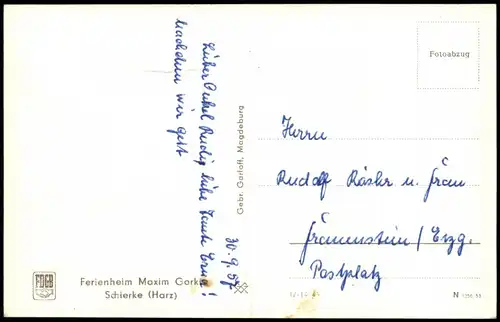 Lieber Onkel Rudi, liebe Tante Erna!
Nachdem wir gest
30.9.57
Gebr. Garloff, Magdeburg
FDGB
Ferienheim Maxim Gorki
Schierke (Harz)
Fotoabzug
Herrn
Rudolf u. Frau
Frauenstein/Erzg.
Postplatz